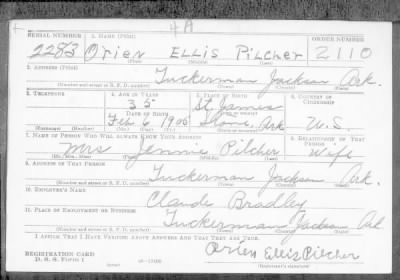 4A
SERIAL NUMBER 1. NAME (Print) ORDER NUMBER
2283 Orien ELLIS Pilcher 2110
(First) (Middle) (Last)
2. ADDRESS (Print)
Tuckerman Jackson Ark.
(Number and street or R. F. D. number) (Town) (County) (State)
3. TELEPHONE 4. AGE IN YEARS 5. PLACE OF BIRTH 6. COUNTRY OF CITIZENSHIP
35 St. James
DATE OF BIRTH (Town or county)
Feb 6 1905 Stone Ark U.S.
(Exchange) (Number) (Mo.) (Day) (Yr.) (State or country)
7. NAME OF PERSON WHO WILL ALWAYS KNOW YOUR ADDRESS 8. RELATIONSHIP OF THAT PERSON
Mrs Jennie Pilcher Wife
(Mr., Mrs., Miss) (First) (Middle) (Last)
9. ADDRESS OF THAT PERSON
Tuckerman Jackson Ark.
(Number and street or R. F. D. number) (Town) (County) (State)
10. EMPLOYER'S NAME
Claude Bradley
11. PLACE OF EMPLOYMENT OR BUSINESS
Tuckerman Jackson Ark
(Number and street or R. F. D. number) (Town) (County) (State)
I AFFIRM THAT I HAVE VERIFIED ABOVE ANSWERS AND THAT THEY ARE TRUE.
REGISTRATION CARD Orien Ellis Pilcher
D. S. S. FORM 1 (over) (Registrant's signature)